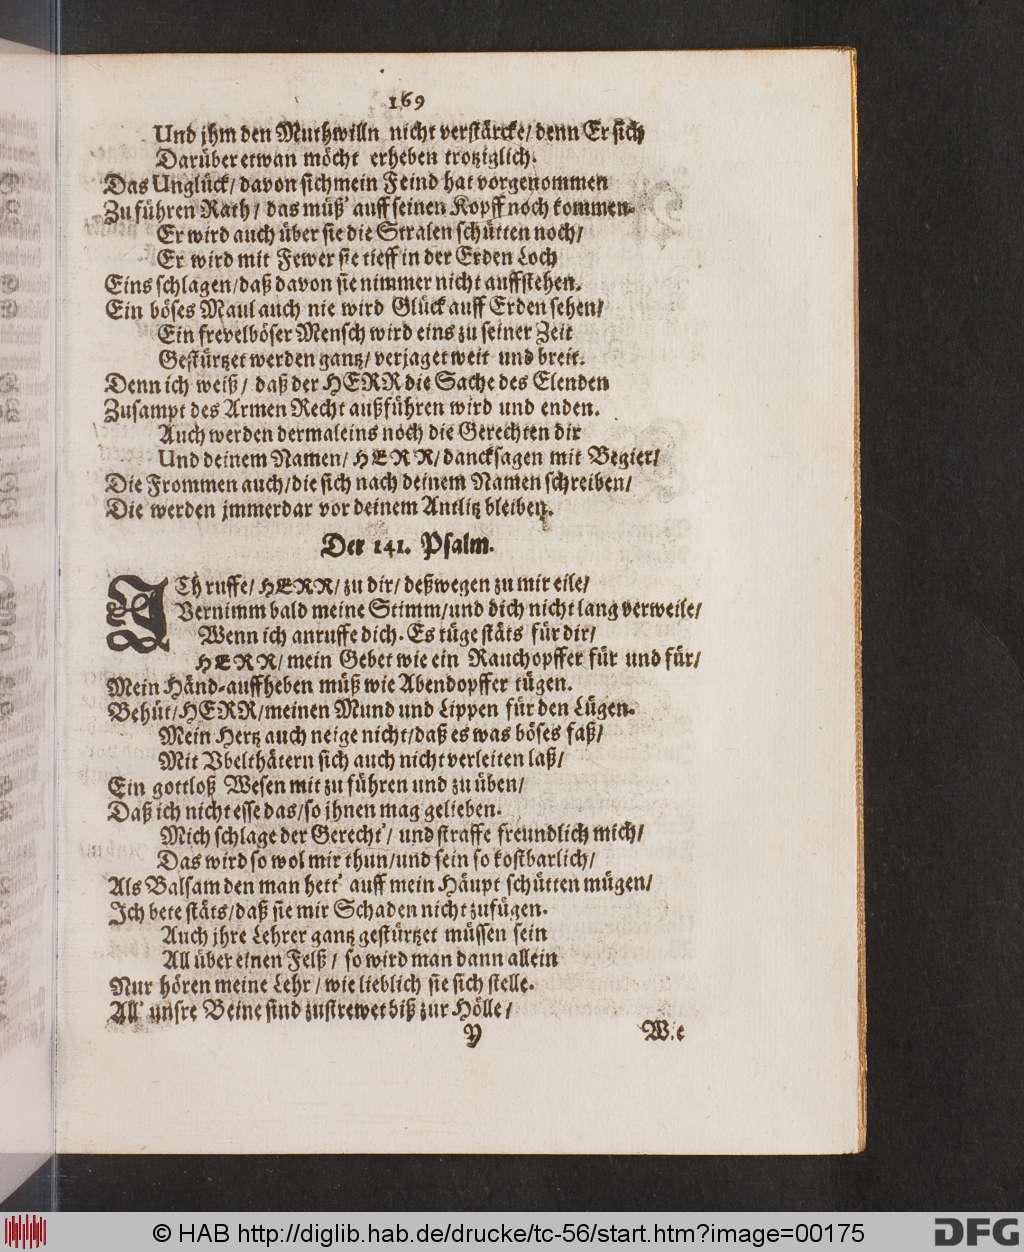 169
Und jhm den Muthwilln nicht verstärcke/ denn Er sich
Darüber etwan möcht erheben trotziglich.
Das Unglück/ davon sich mein Feind hat vorgenommen
Zu führen Rath/ das müß' auff seinen Kopff noch kommen.
Er wird auch über sie die Stralen schütten noch/
Er wird mit Fewer sie tieff in der Erden Loch
Eins schlagen/ daß davon sie nimmer nicht auffstehen.
Ein böses Maul auch nie wird Glück auff Erden sehen/
Ein frevelböser Mensch wird eins zu seiner Zeit
Gestürtzet werden gantz/ verjaget weit und breit.
Denn ich weiß/ daß der HERR die Sache des Elenden
Zusampt des Armen Recht außführen wird und enden.
Auch werden dermaleins noch die Gerechten dir
Und deinem Namen/ HERR/ dancksagen mit Begier/
Die Frommen auch/ die sich nach deinem Namen schreiben/
Die werden jmmerdar vor deinem Antlitz bleiben.
Der 141. Psalm.
ICh ruffe/ HERR/ zu dir/ deßwegen zu mir eile/
Vernimm bald meine Stimm/ und dich nicht lang verweile/
Wenn ich anruffe dich. Es tüge stäts für dir/
HERR/ mein Gebet wie ein Rauchopffer für und für/
Mein Händ-auffheben müß wie Abendopffer tügen.
Behüt/ HERR/ meinen Mund und Lippen für den Lügen.
Mein Hertz auch neige nicht/ daß es was böses faß/
Mit Vbelthätern sich auch nicht verleiten laß/
Ein gottloß Wesen mit zu führen und zu üben/
Daß ich nicht esse das/ so ihnen mag gelieben.
Mich schlage der Gerecht'/ und straffe freundlich mich/
Das wird so wol mir thun/ und sein so kostbarlich/
Als Balsam den man hett' auff mein Häupt schütten mügen/
Ich bete stäts/ daß sie mir Schaden nicht zufügen.
Auch jhre Lehrer gantz gestürtzet müssen sein
All über einen Felß/ so wird man dann allein
Nur hören meine Lehr/ wie lieblich sie sich stelle.
All' unsre Beine sind zustrewet biß zur Hölle/
Y W.e
© HAB http://diglib.hab.de/drucke/tc-56/start.htm?image=00175
DFG